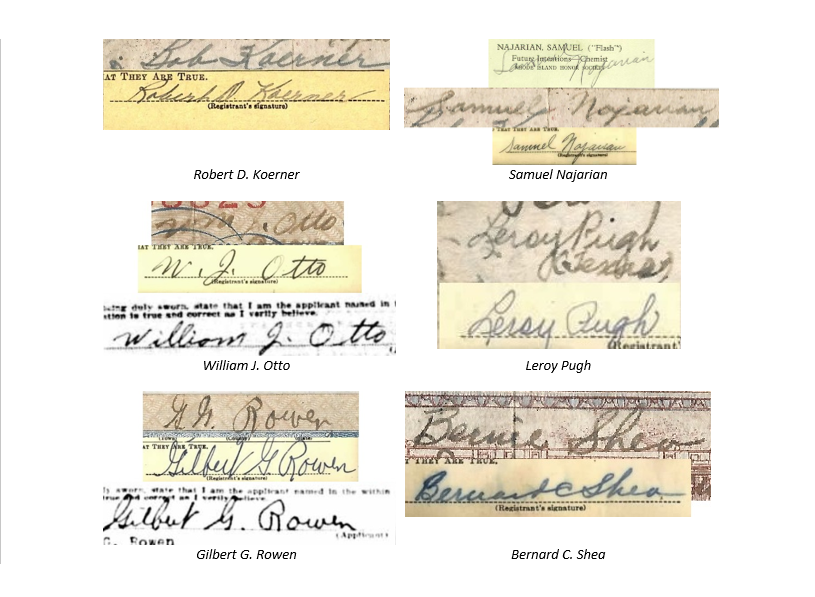 Bob Koerner
AT THEY ARE TRUE.
Robert D. Koerner
(Registrant's signature)
Robert D. Koerner
NAJARIAN, SAMUEL ("Flash")
Future Intentions—Chemist
RHODE ISLAND HONOR SOCIETY
Sam Najarian
Samuel Najarian
T THEY ARE TRUE.
Samuel Najarian
(Registrant's signature)
Samuel Najarian
Wm. J. Otto
AT THEY ARE TRUE.
W. J. Otto
(Registrant's signature)
being duly sworn, state that I am the applicant named in
ation is true and correct as I verily believe.
William J. Otto
William J. Otto
Leroy Pugh
(Texas)
Leroy Pugh
(Registrant'
Leroy Pugh
G. G. Rowen
(Town) (County) (State)
AT THEY ARE TRUE.
Gilbert G Rowen
(Registrant's signature)
ly sworn, state that I am the applicant named in the within
true and correct as I verily believe.
Gilbert G. Rowen
(Applicant)
G. Rowen
Gilbert G. Rowen
Bernie Shea
T THEY ARE TRUE.
Bernard C Shea
(Registrant's signature)
Bernard C. Shea